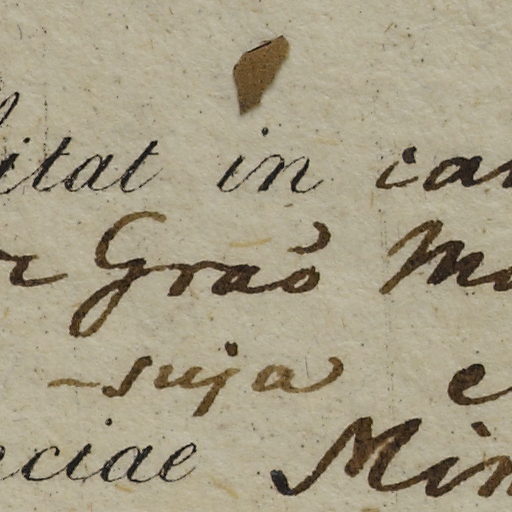 itat in can
a Graõ Mo
-suja e
nciae Min